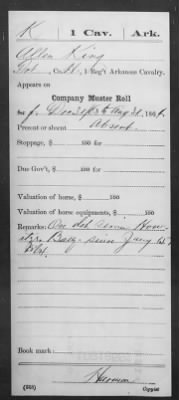 K | 1 Cav. | Ark.
Allen King
Pvt, Co. K, 1 Reg't Arkansas Cavalry.
Appears on
Company Muster Roll
for Dec 31, 63 to Aug 31, 1864.
Present or absent Absent
Stoppage, $ 100 for
Due Gov't, $ 100 for
Valuation of horse, $ 100
Valuation of horse equipments, $ 100
Remarks: On det. service How-
itzer Batty since Jany
Book mark:
(358) Copyist